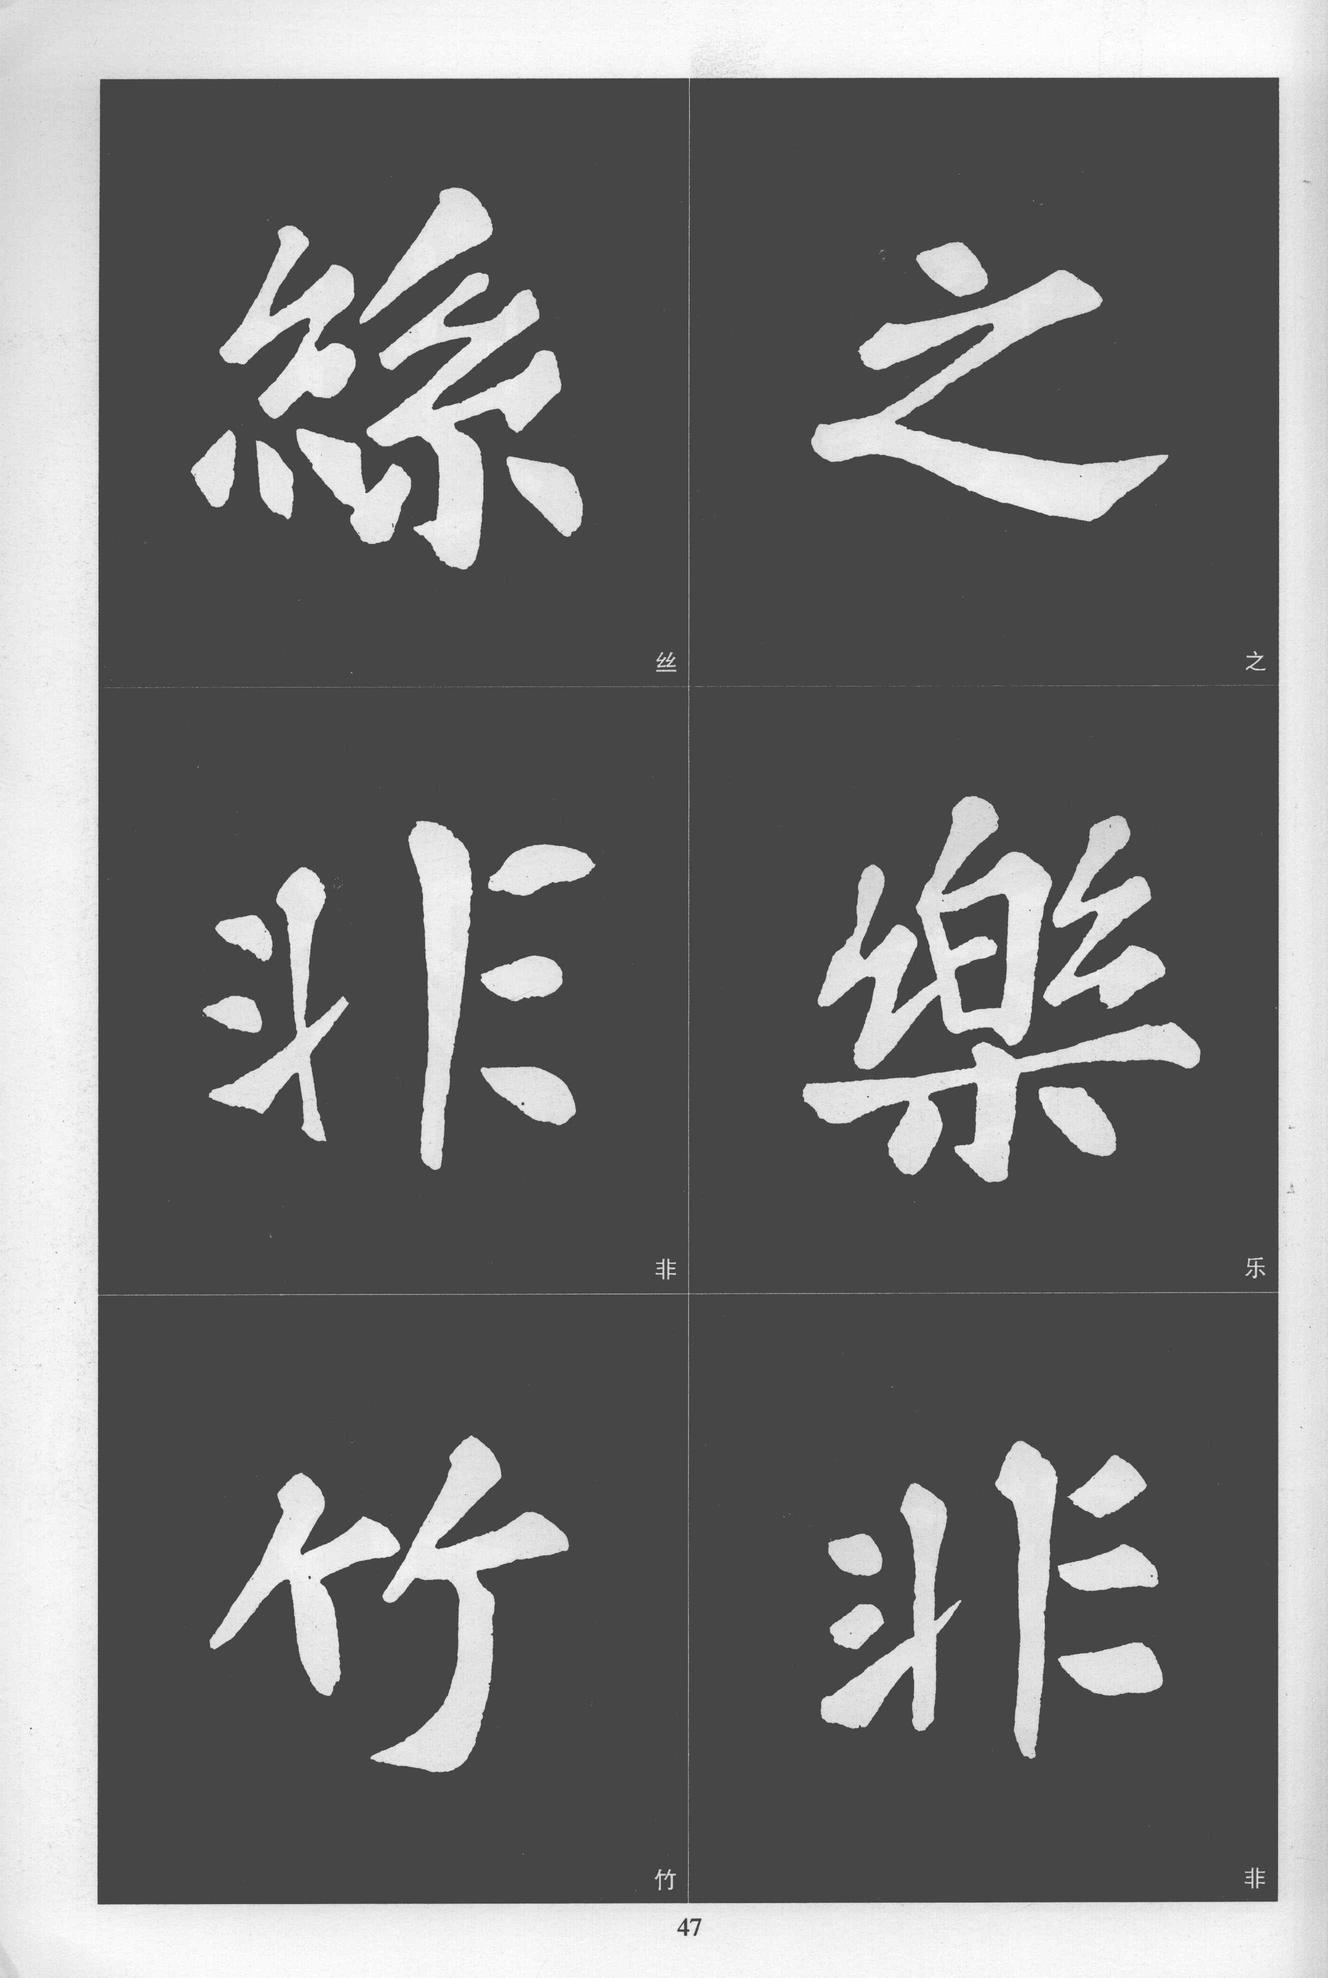 之
之
樂
乐
非
非
絲
丝
非
非
竹
竹
47